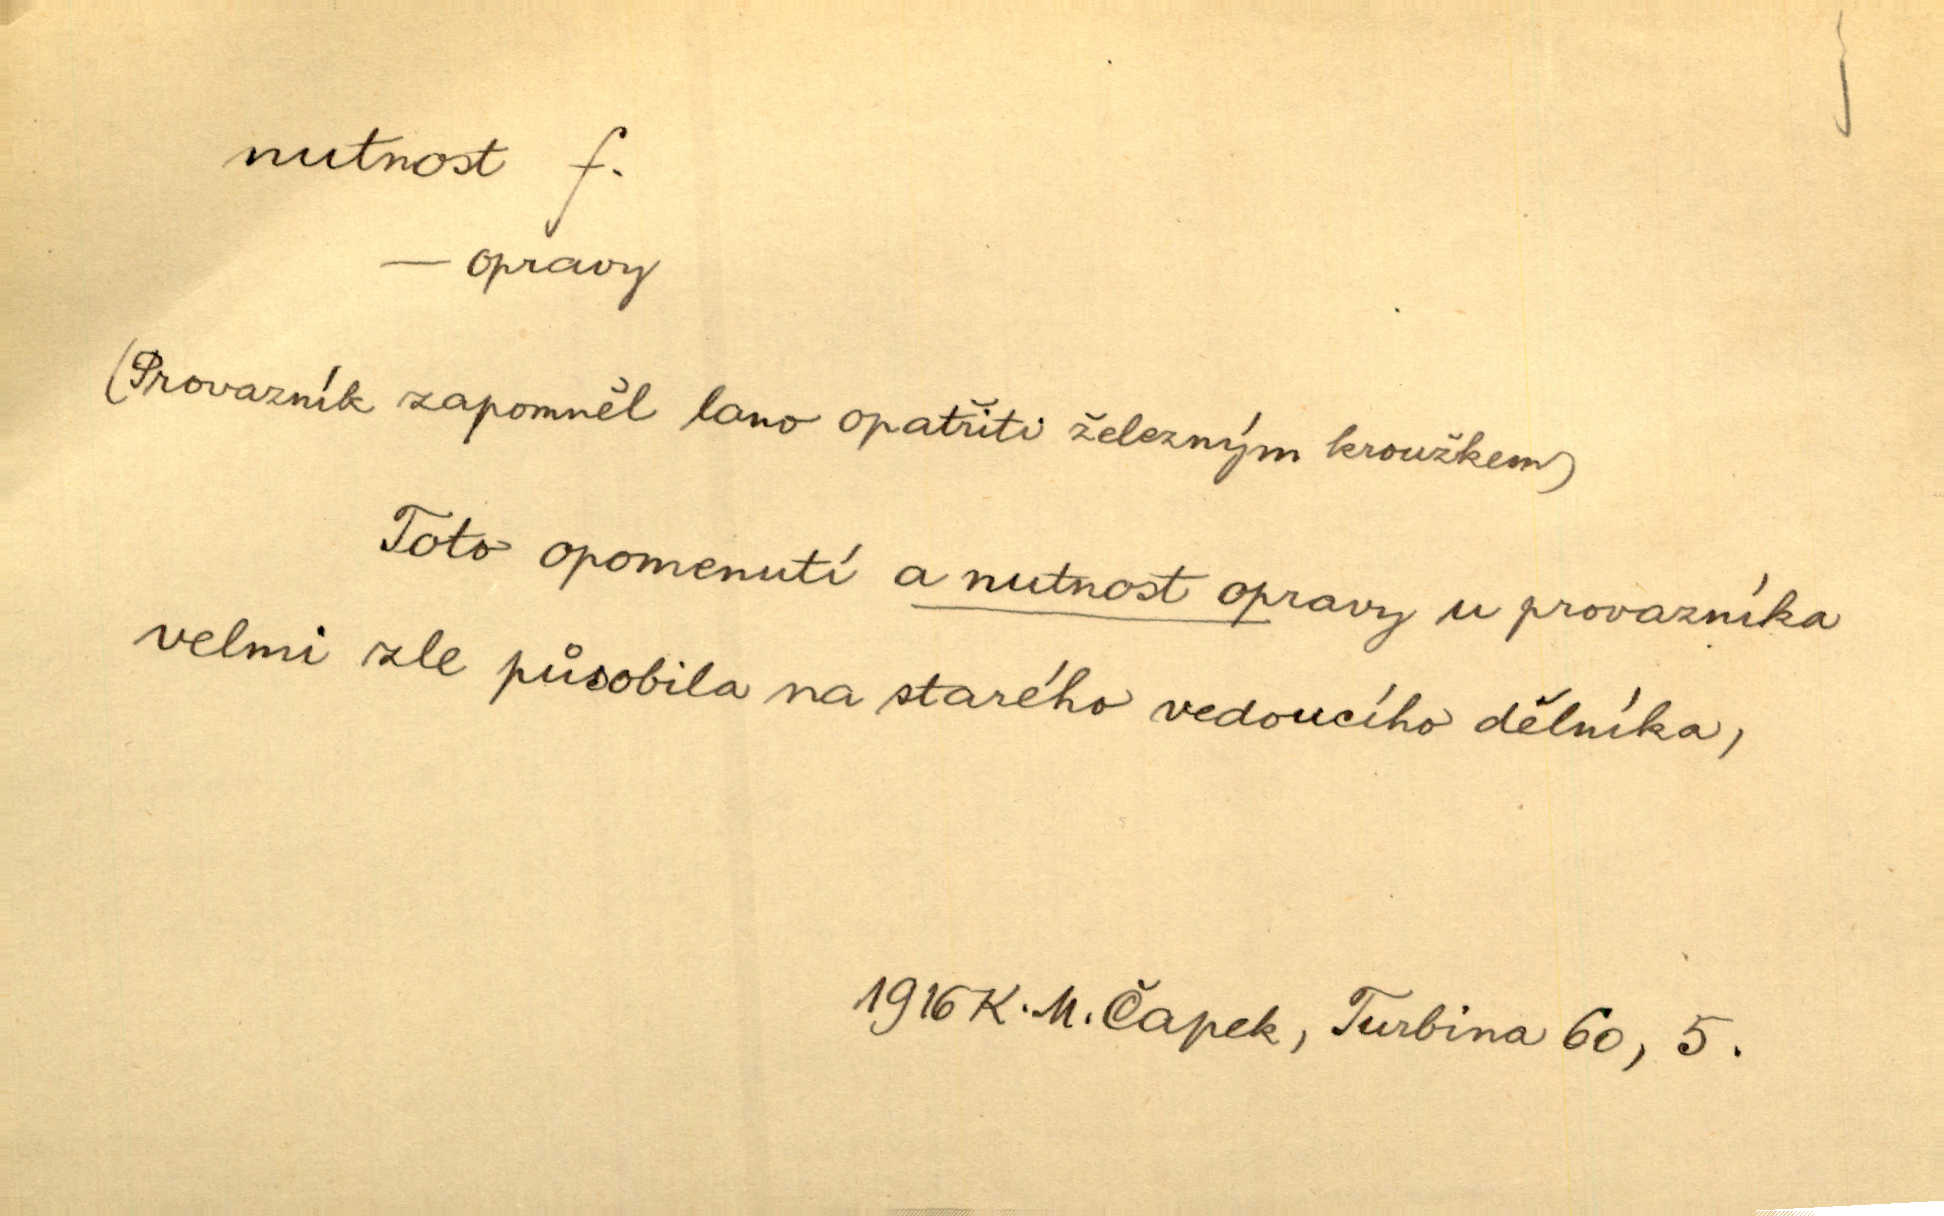 nutnost f.
— opravy
(Provazník zapomněl lano opatřiti železným kroužkem)
Toto opomenutí a nutnost opravy u provazníka
velmi zle působila na starého vedoucího dělníka,
1916 K. M. Čapek, Turbina 60, 5.